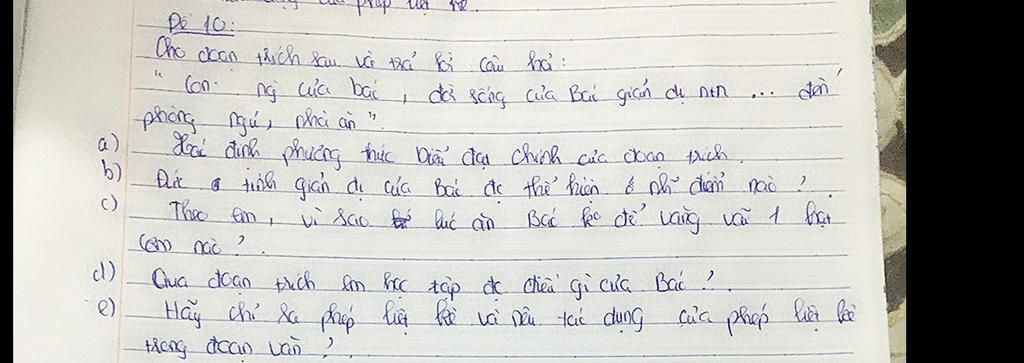 của phép liệt kê.
Đề 10:
Cho đoạn trích sau và trả lời câu hỏi:
" Con ng của bác, đời sống của Bác giản dị ntn ... đến
phòng ngủ, nhà ăn".
a) Xác định phương thức biểu đạt chính của đoạn trích.
b) Đức tính giản dị của Bác đc thể hiện ở nh~ điểm nào?
c) Theo em, vì sao lúc ăn Bác ko để vãi 1 hạt
cơm nào?
d) Qua đoạn trích em học tập đc điều gì của Bác?
e) Hãy chỉ ra phép liệt kê và nêu tác dụng của phép liệt kê
trong đoạn văn?